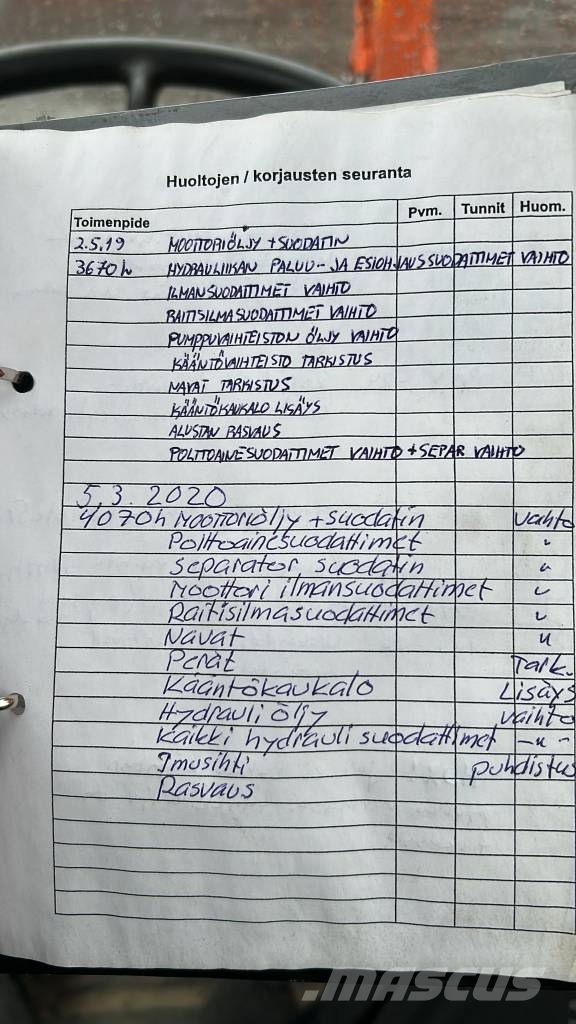 Huoltojen / korjausten seuranta
Toimenpide Pvm. Tunnit Huom.
2.5.19 MOOTTORIÖLJY + SUODATIN
3670 h HYDRAULIIKAN PALUU- JA ESIOHJAUSSUODATTIMET VAIHTO
ILMANSUODATTIMET VAIHTO
RAITISILMASUODATTIMET VAIHTO
PUMPPUVAIHTEISTON ÖLJY VAIHTO
KÄÄNTÖVAIHTEISTO TARKISTUS
NAVAT TARKISTUS
KÄÄNTÖKAUKALO LISÄYS
ALUSTAN RASVAUS
POLTTOAINESUODATTIMET VAIHTO + SEPAR VAIHTO
5.3.2020
4070h Moottoriöljy + suodatin vaihto
Polttoainesuodattimet "
Separator suodatin "
Moottori ilmansuodattimet "
Raitisilmasuodattimet "
Navat "
Perät Tark.
Kääntökaukalo Lisäys
Hydrauli öljy vaihto
Kaikki hydrauli suodattimet -"-
Imusihti puhdistus
Rasvaus
mascus